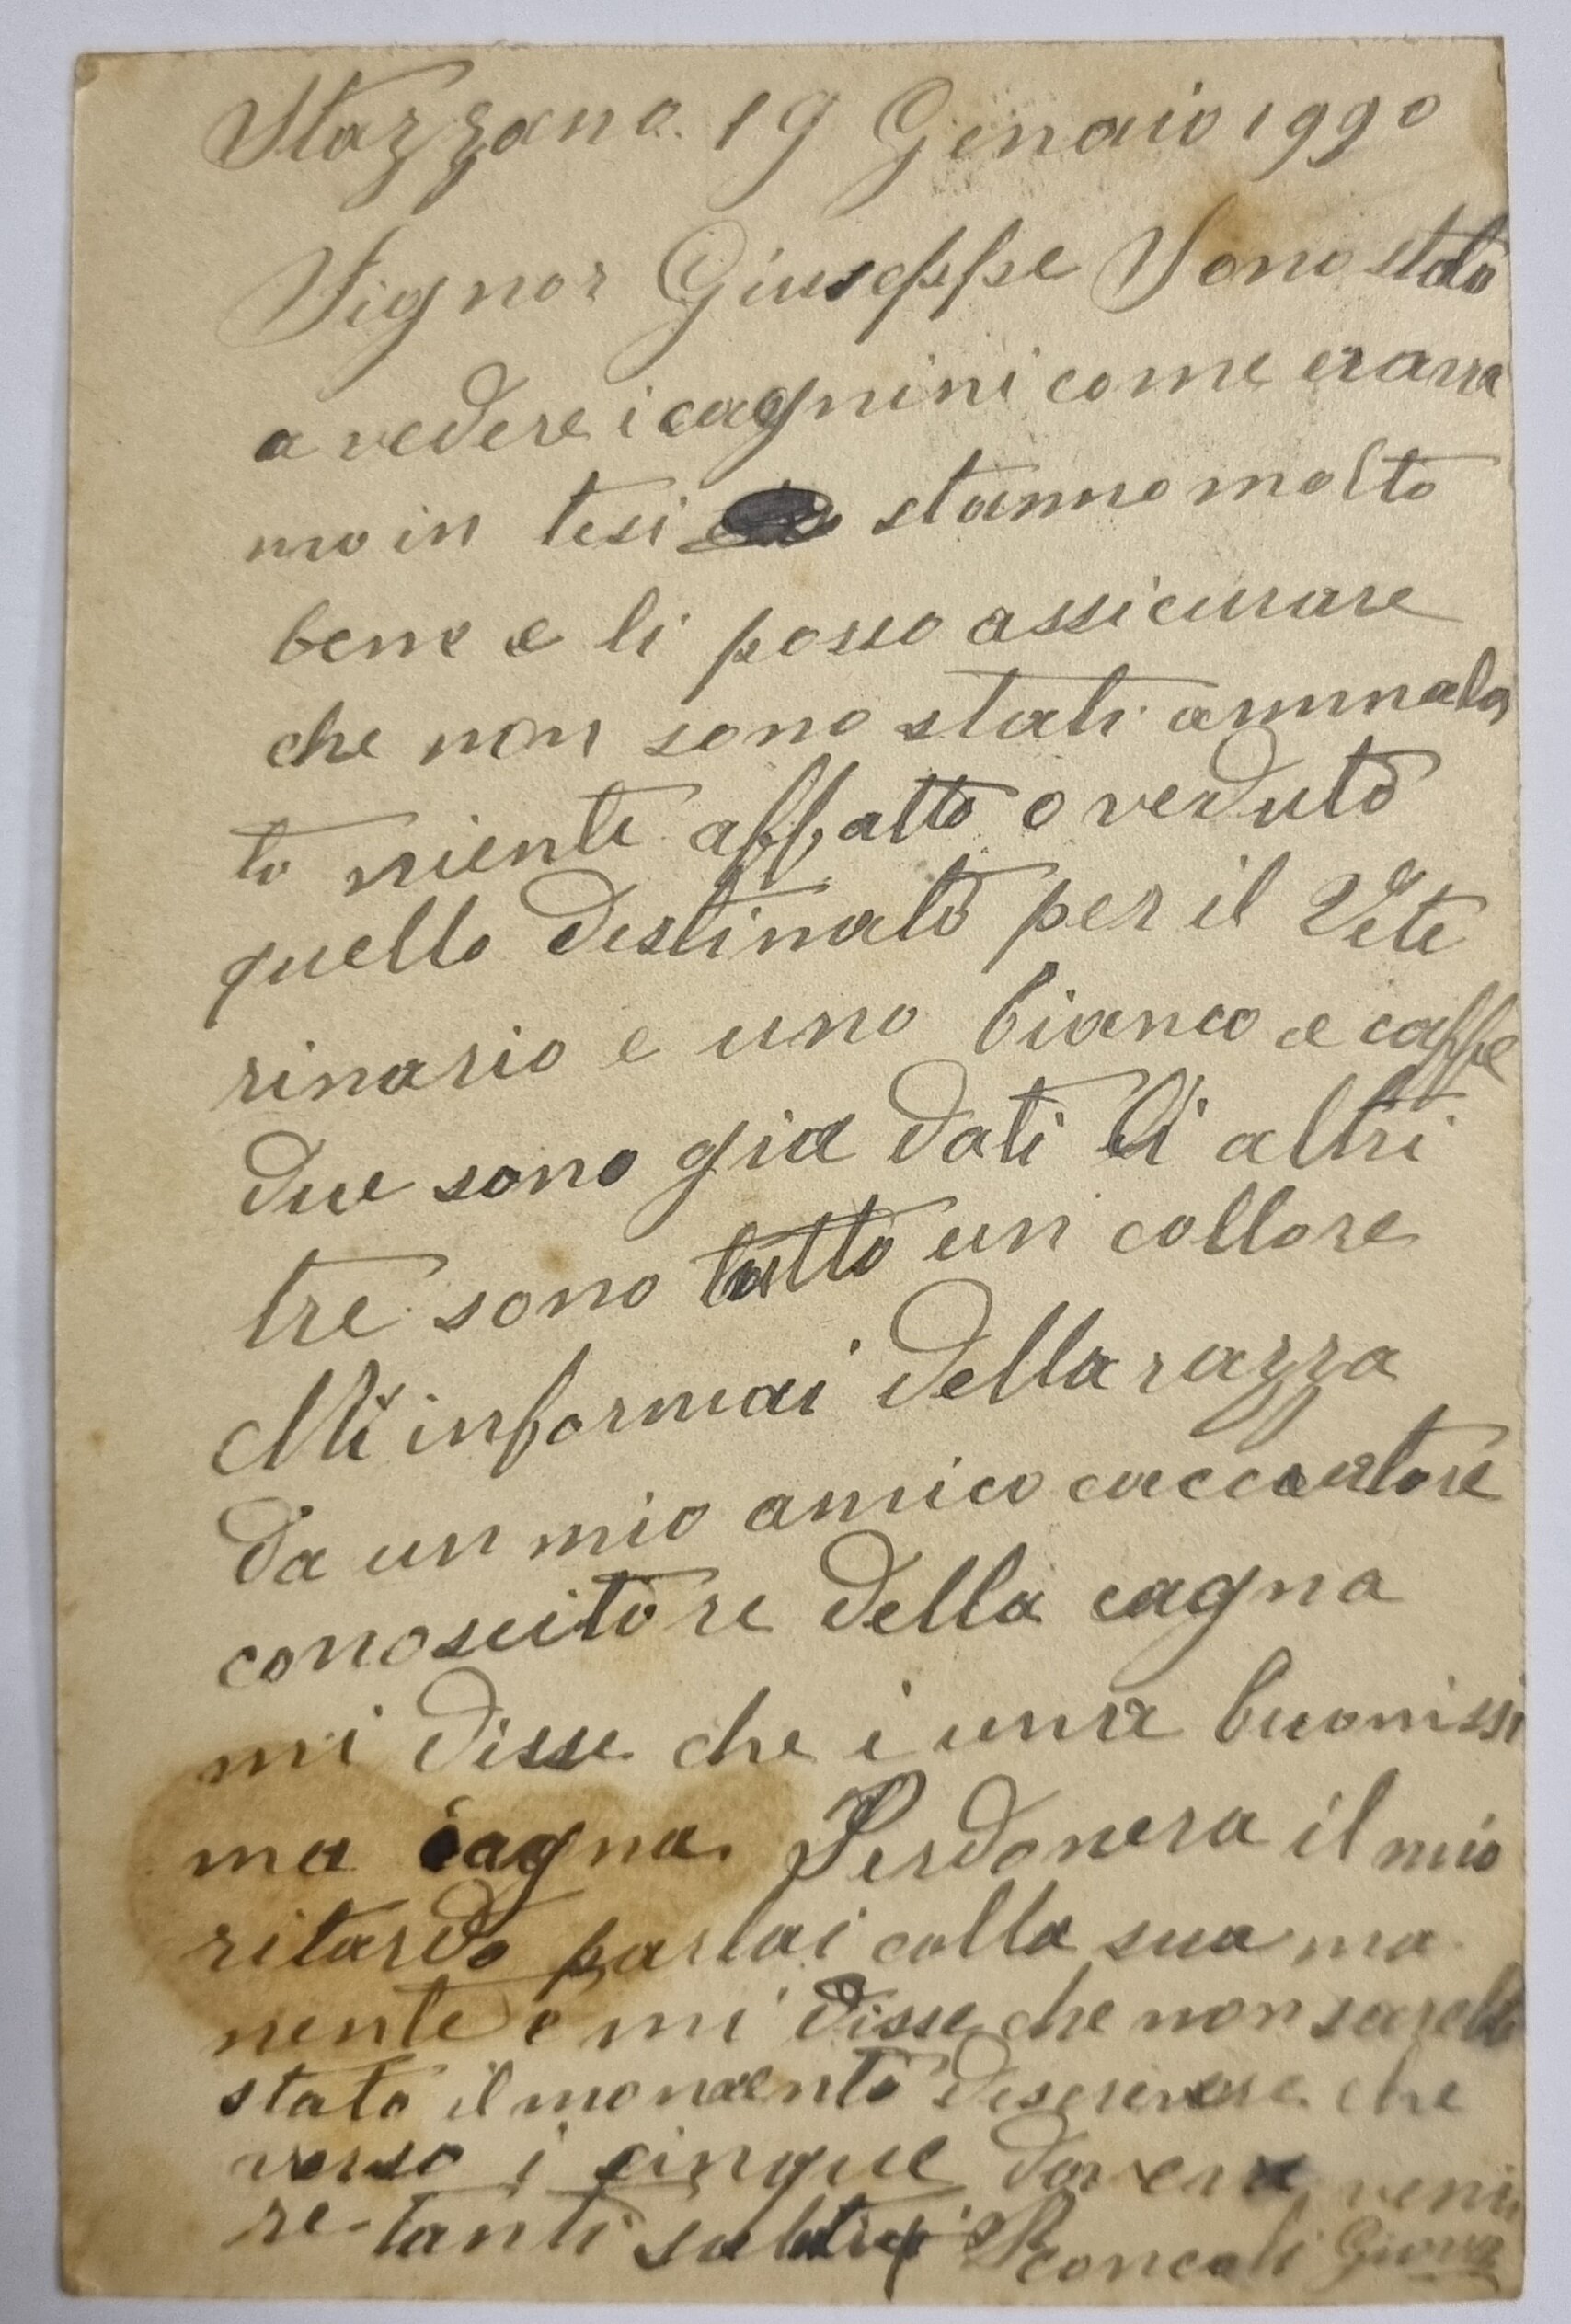 Stazzano. 19 Genaio 1990
Signor Giuseppe Sono stato
a vedere i cagnini come erava
mo in tesi stanno molto
bene e li posso assicurare
che non sono stati ammala
to niente affatto o veduto
quello destinato per il Vete
rinario e uno bianco e caffe
due sono gia dati li altri
tre sono tutto un collore
Mi informai della razza
da un mio amico cacciatore
conoscitore della cagna
mi disse che i una buonissi
ma cagna. Perdonera il mio
ritardo parlai colla sua ma
nente e mi disse che non sarebbe
stato il momento descrivere che
verso i cinque dovera veni
re - tanti saluti